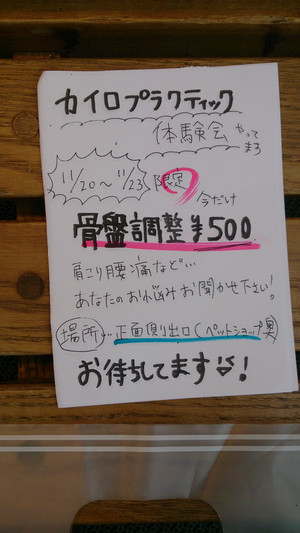 カイロプラクティック
体験会 やってます
11/20~11/23 限定
今だけ
骨盤調整¥500
肩こり腰痛など…
あなたのお悩みお聞かせ下さい!
場所…正面側出口(ペットショップ奥)
お待ちしてます!